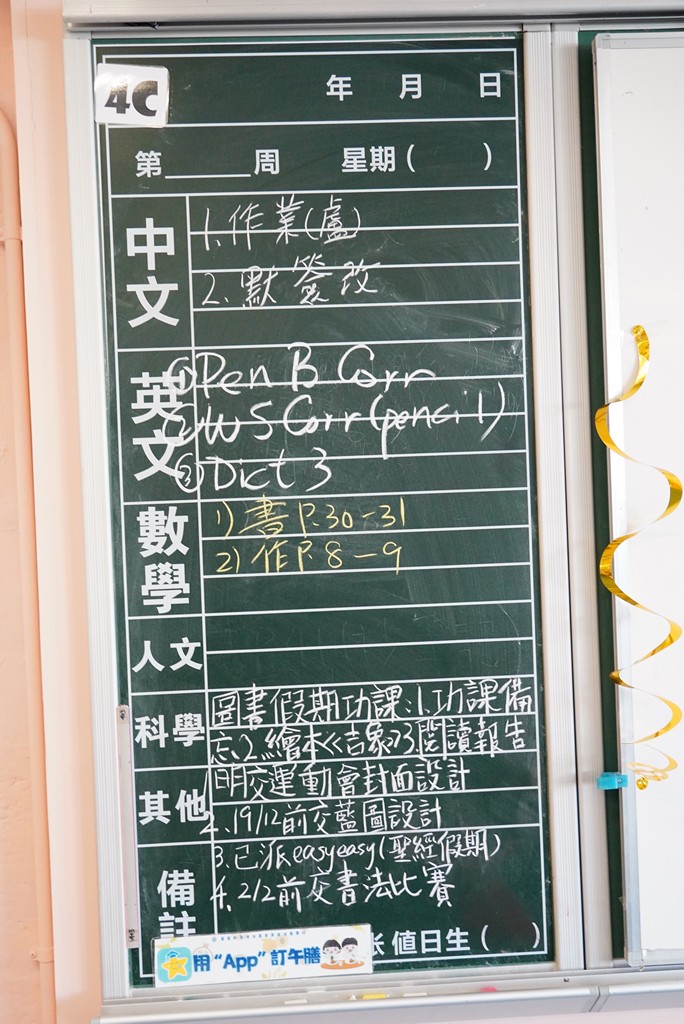 4C
年 月 日
第 周 星期( )
中文
1. 作業(盧)
2. 默簽改
英文
①Pen B Corr
②WS Corr (pencil)
③Dict 3
數學
1) 書P.30-31
2) 作P.8-9
人文
科學
圖書假期功課:1.功課備
忘2.繪本<<吉象>>3閱讀報告
其他
明交運動會封面設計
2. 19/12前交藍圖設計
備註
3. 已派easyeasy(聖經假期)
4. 2/2前交書法比賽
值日生( )
用“App”訂午膳